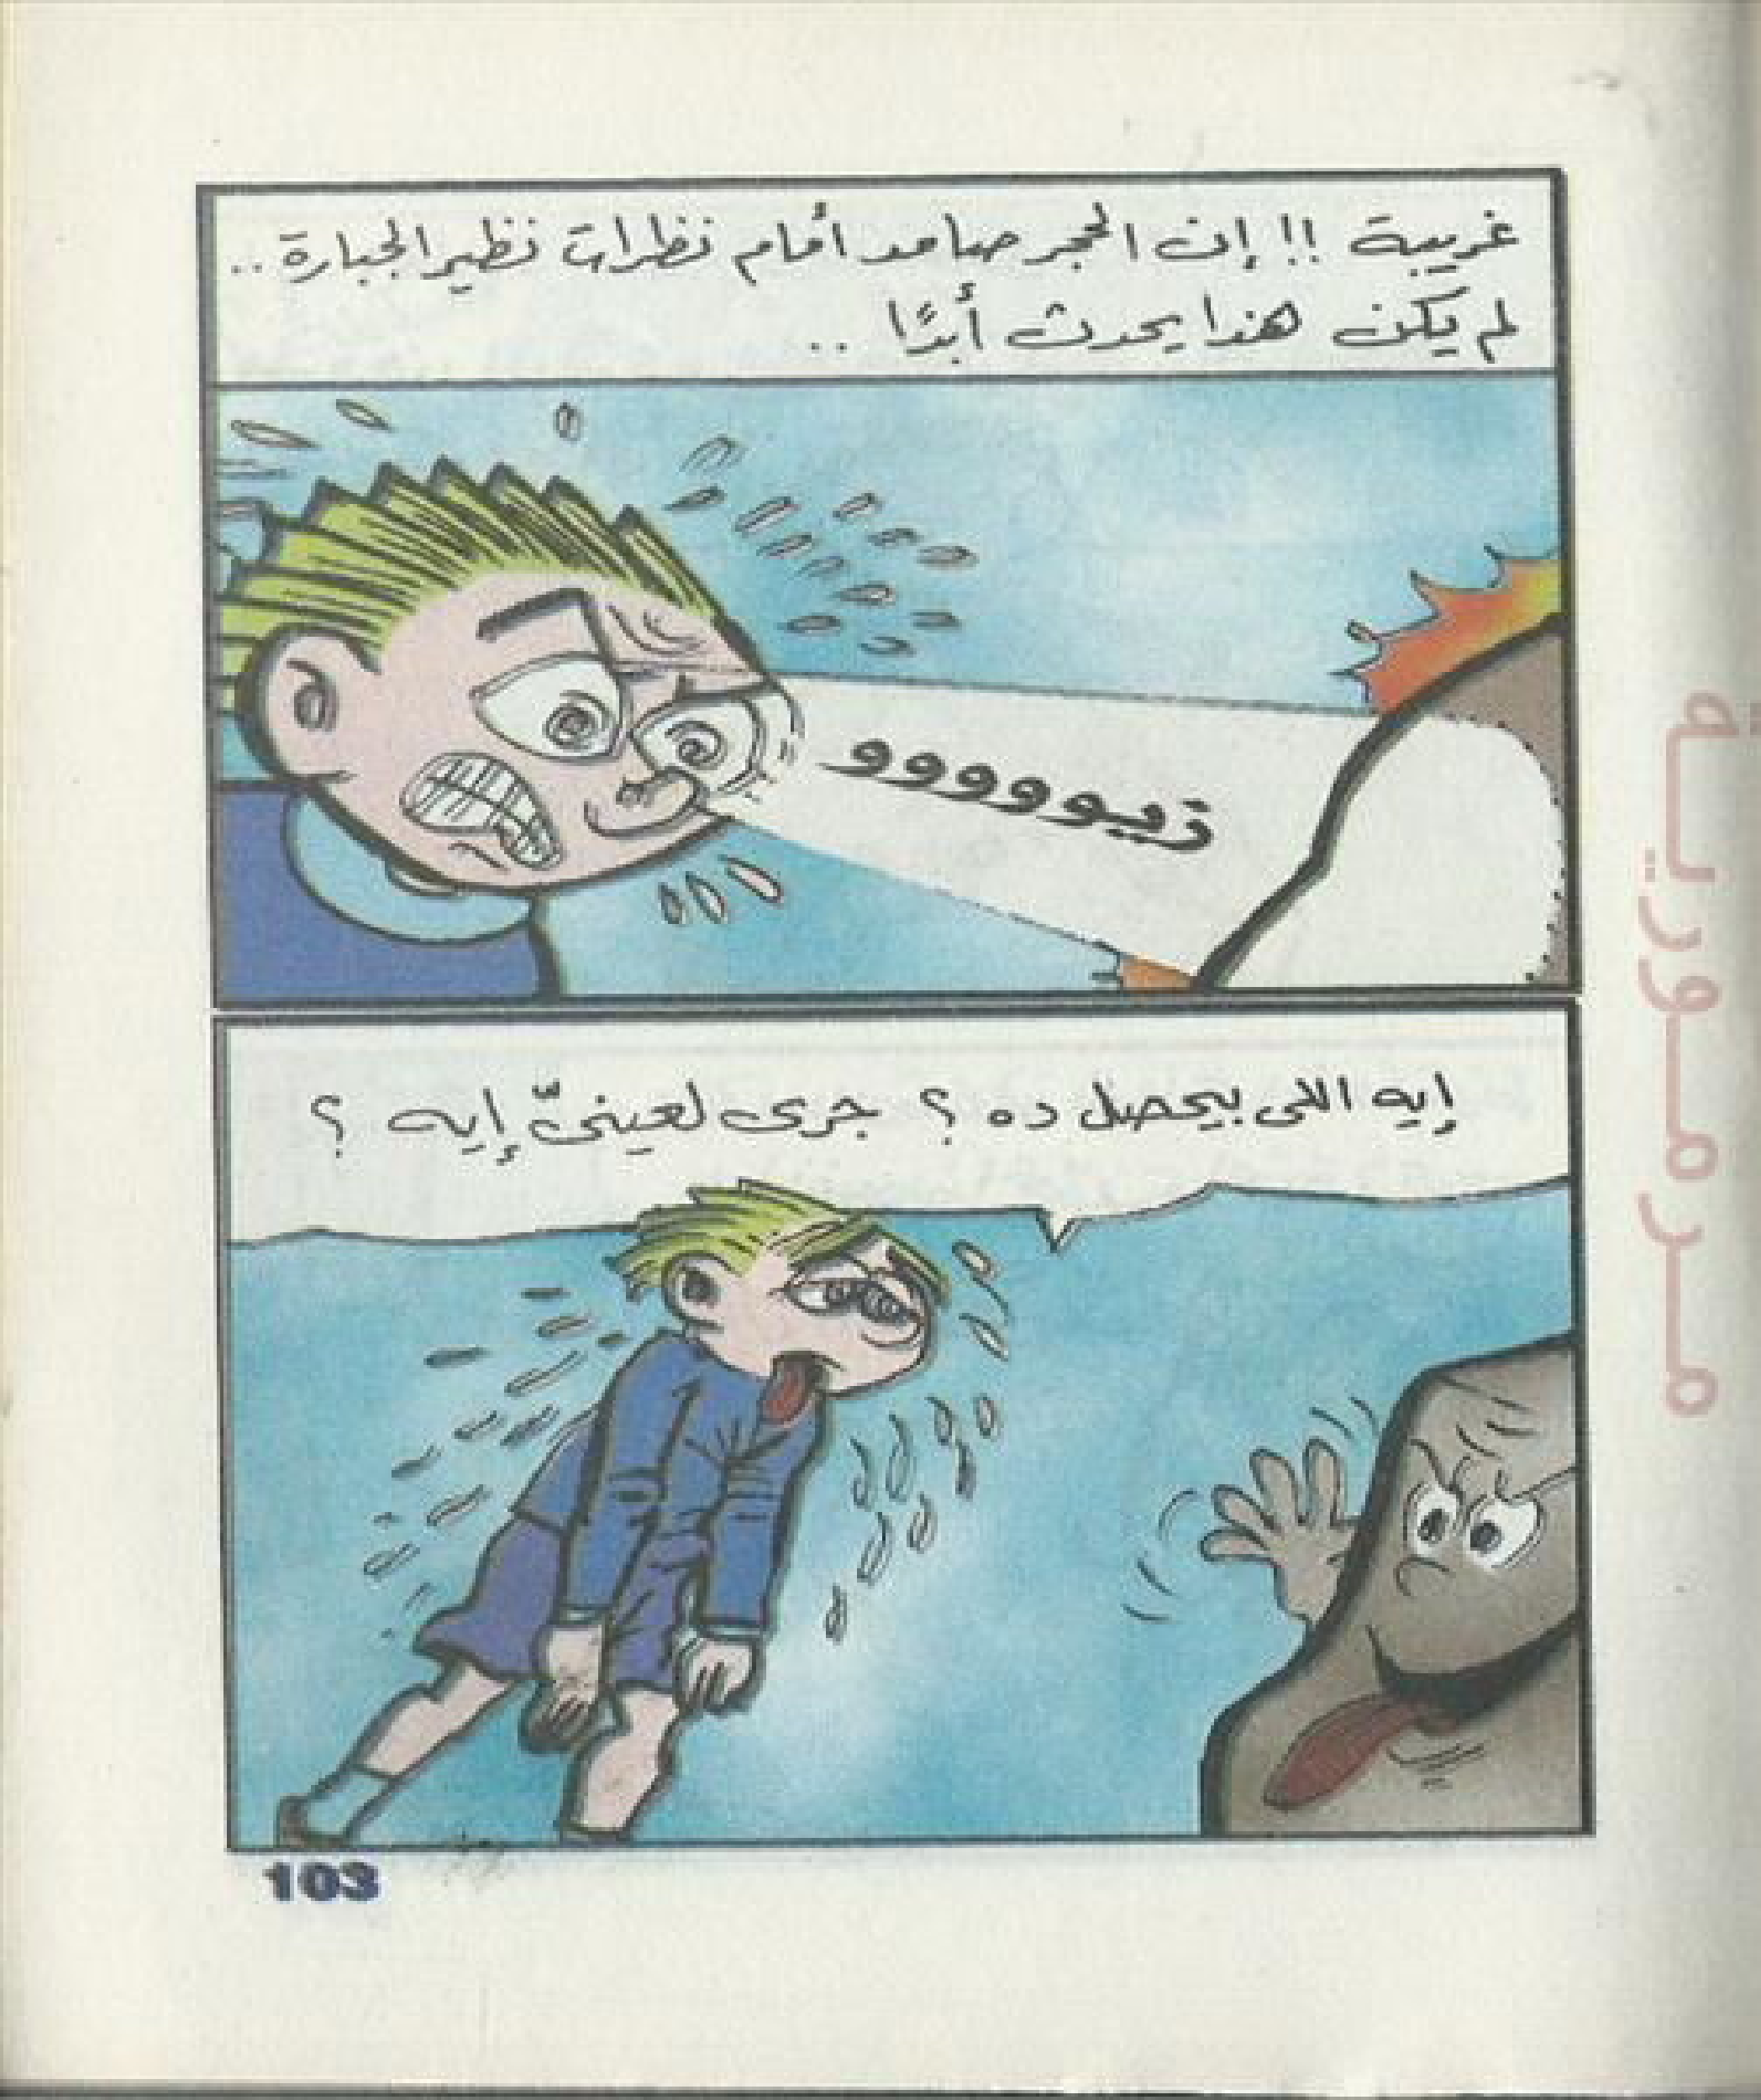 غريبة !! إن الحجر صامد أمام نظرات نظير الجبارة ..
لم يكن هذا يحدث أبدًا ..
زيوووووو
إيه اللى بيحصل ده ؟ جرى لعينىّ إيه ؟
103
مـرمـوريـة